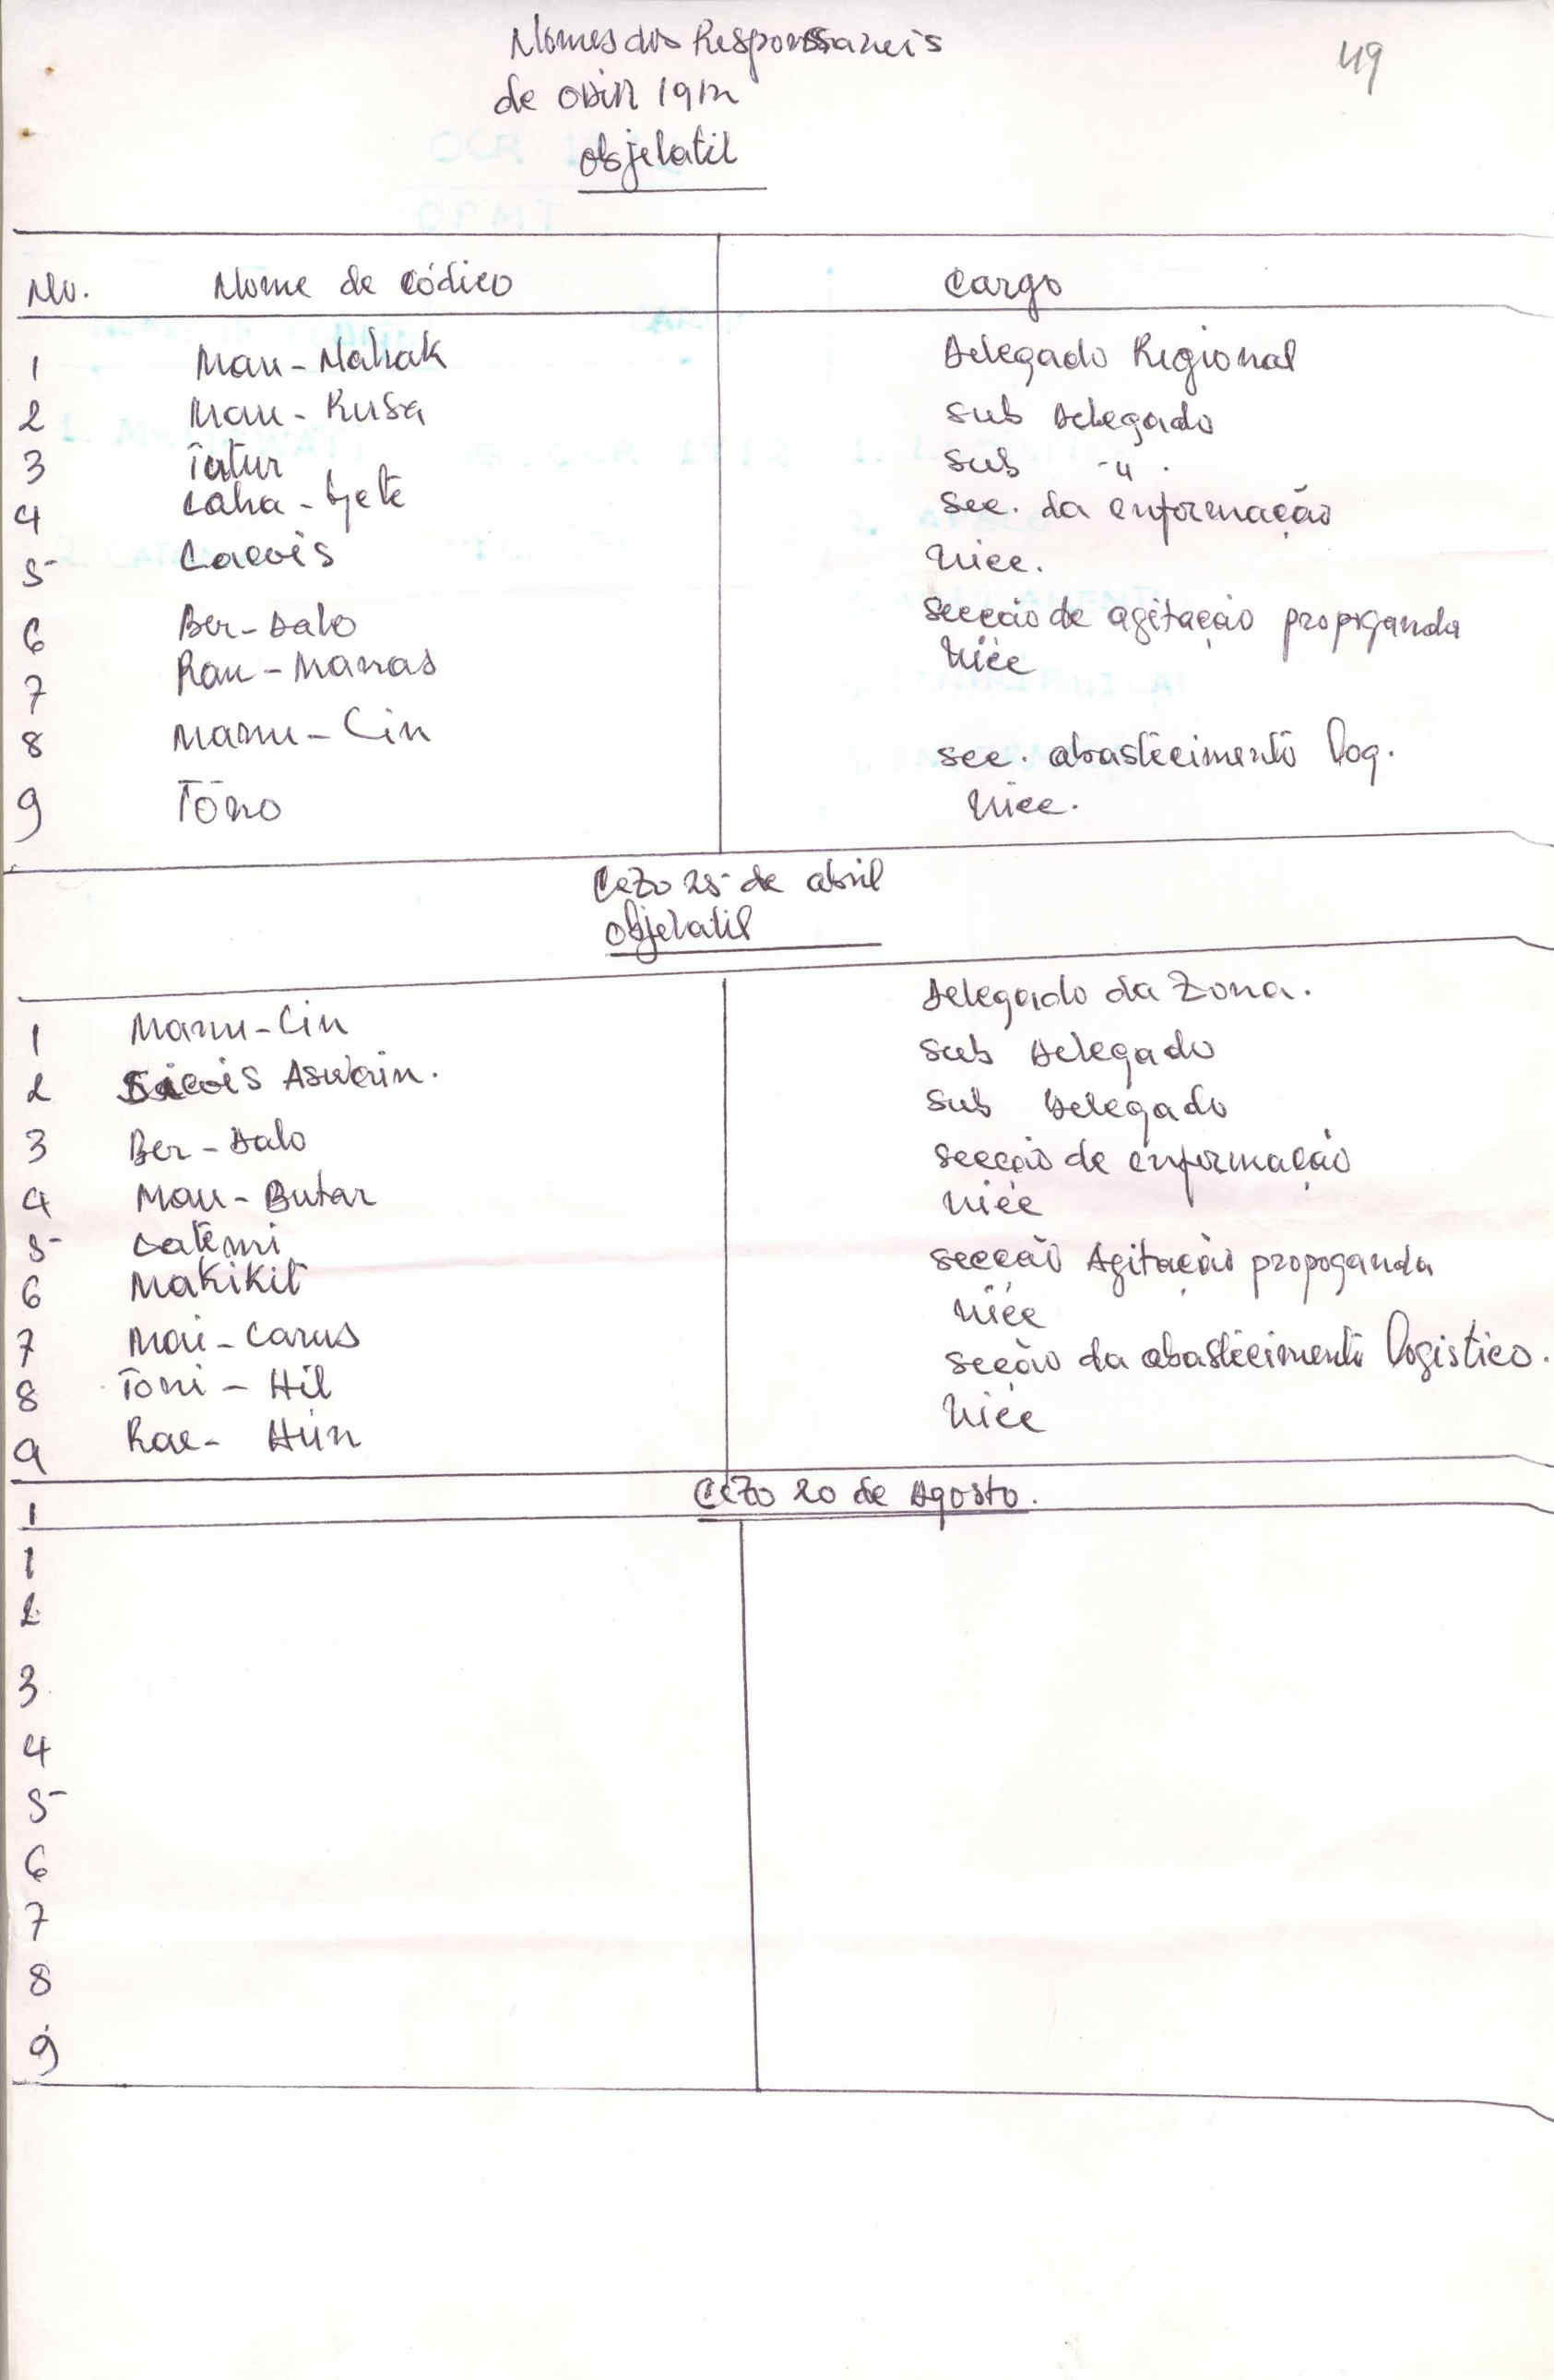 Nomes dos Responsaveis
49
de ODIR 1912
objelatil
No. Nome de Código Cargo
1 Mau-Nahak Delegado Regional
2 Mau-Kusa Sub Delegado
3 Tatur Sub -"-
4 Laha-Gete sec. da enformação
5 Lacois vice.
6 Ber-Dalo secção de agitação propaganda
7 Rau-Manas vice
8 Manu-Cin sec. abastecimento log.
9 Tono vice.
Cezo 25 de abril
objelatil
1 Manu-Cin Delegado da Zona.
2 Aswain. Sub Delegado
3 Ber-Dalo Sub Delegado
4 Mau-Butar secção de enformação
5 Latemi vice
6 Makikit secção Agitação propoganda
7 Mai-Carus vice
8 Toni-Hil secão da abastecimento logistico.
9 Rae-Hun vice
1 Cezo 20 de Agosto.
1
2
3
4
5
6
7
8
9